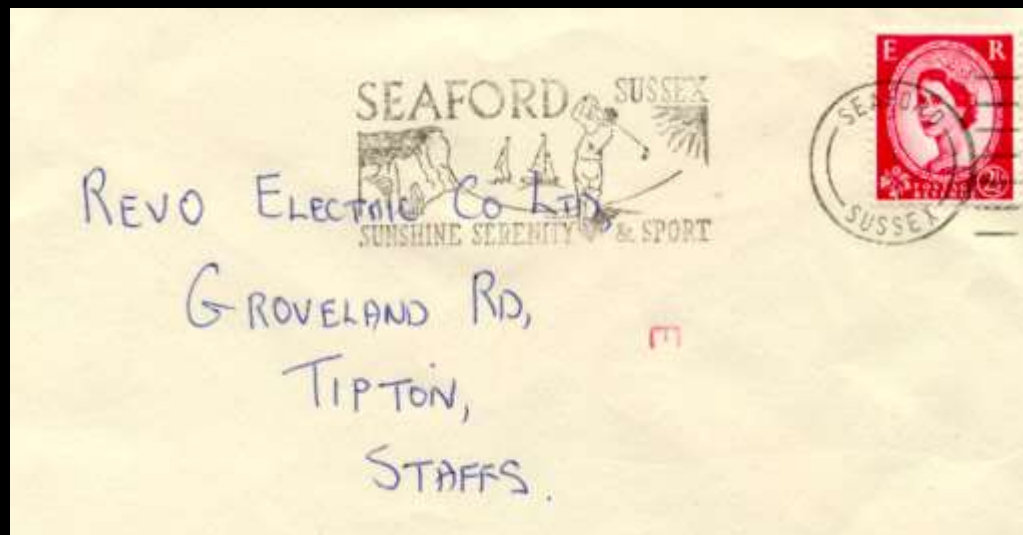 SEAFORD SUSSEX
SUNSHINE SERENITY & SPORT
E R
2½
SEAFORD
SUSSEX
REVO ELECTRIC CO LTD,
GROVELAND RD,
TIPTON,
STAFFS.
E